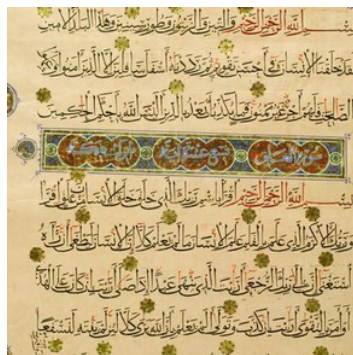 بسم الله الرحمن الرحيم والتين والزيتون وطور سينين وهذا البلد الأمين
لقد خلقنا الإنسان في أحسن تقويم ثم رددناه أسفل سافلين إلا الذين آمنوا وعملوا
الصالحات فلهم أجر غير ممنون فما يكذبك بعد بالدين أليس الله بأحكم الحاكمين
سورة العلق
بسم الله الرحمن الرحيم اقرأ باسم ربك الذي خلق خلق الإنسان من علق اقرأ
وربك الأكرم الذي علم بالقلم علم الإنسان ما لم يعلم كلا إن الإنسان ليطغى أن رآه
استغنى إن إلى ربك الرجعى أرأيت الذي ينهى عبدا إذا صلى أرأيت إن كان على الهدى
أو أمر بالتقوى أرأيت إن كذب وتولى ألم يعلم بأن الله يرى كلا لئن لم ينته لنسفعا